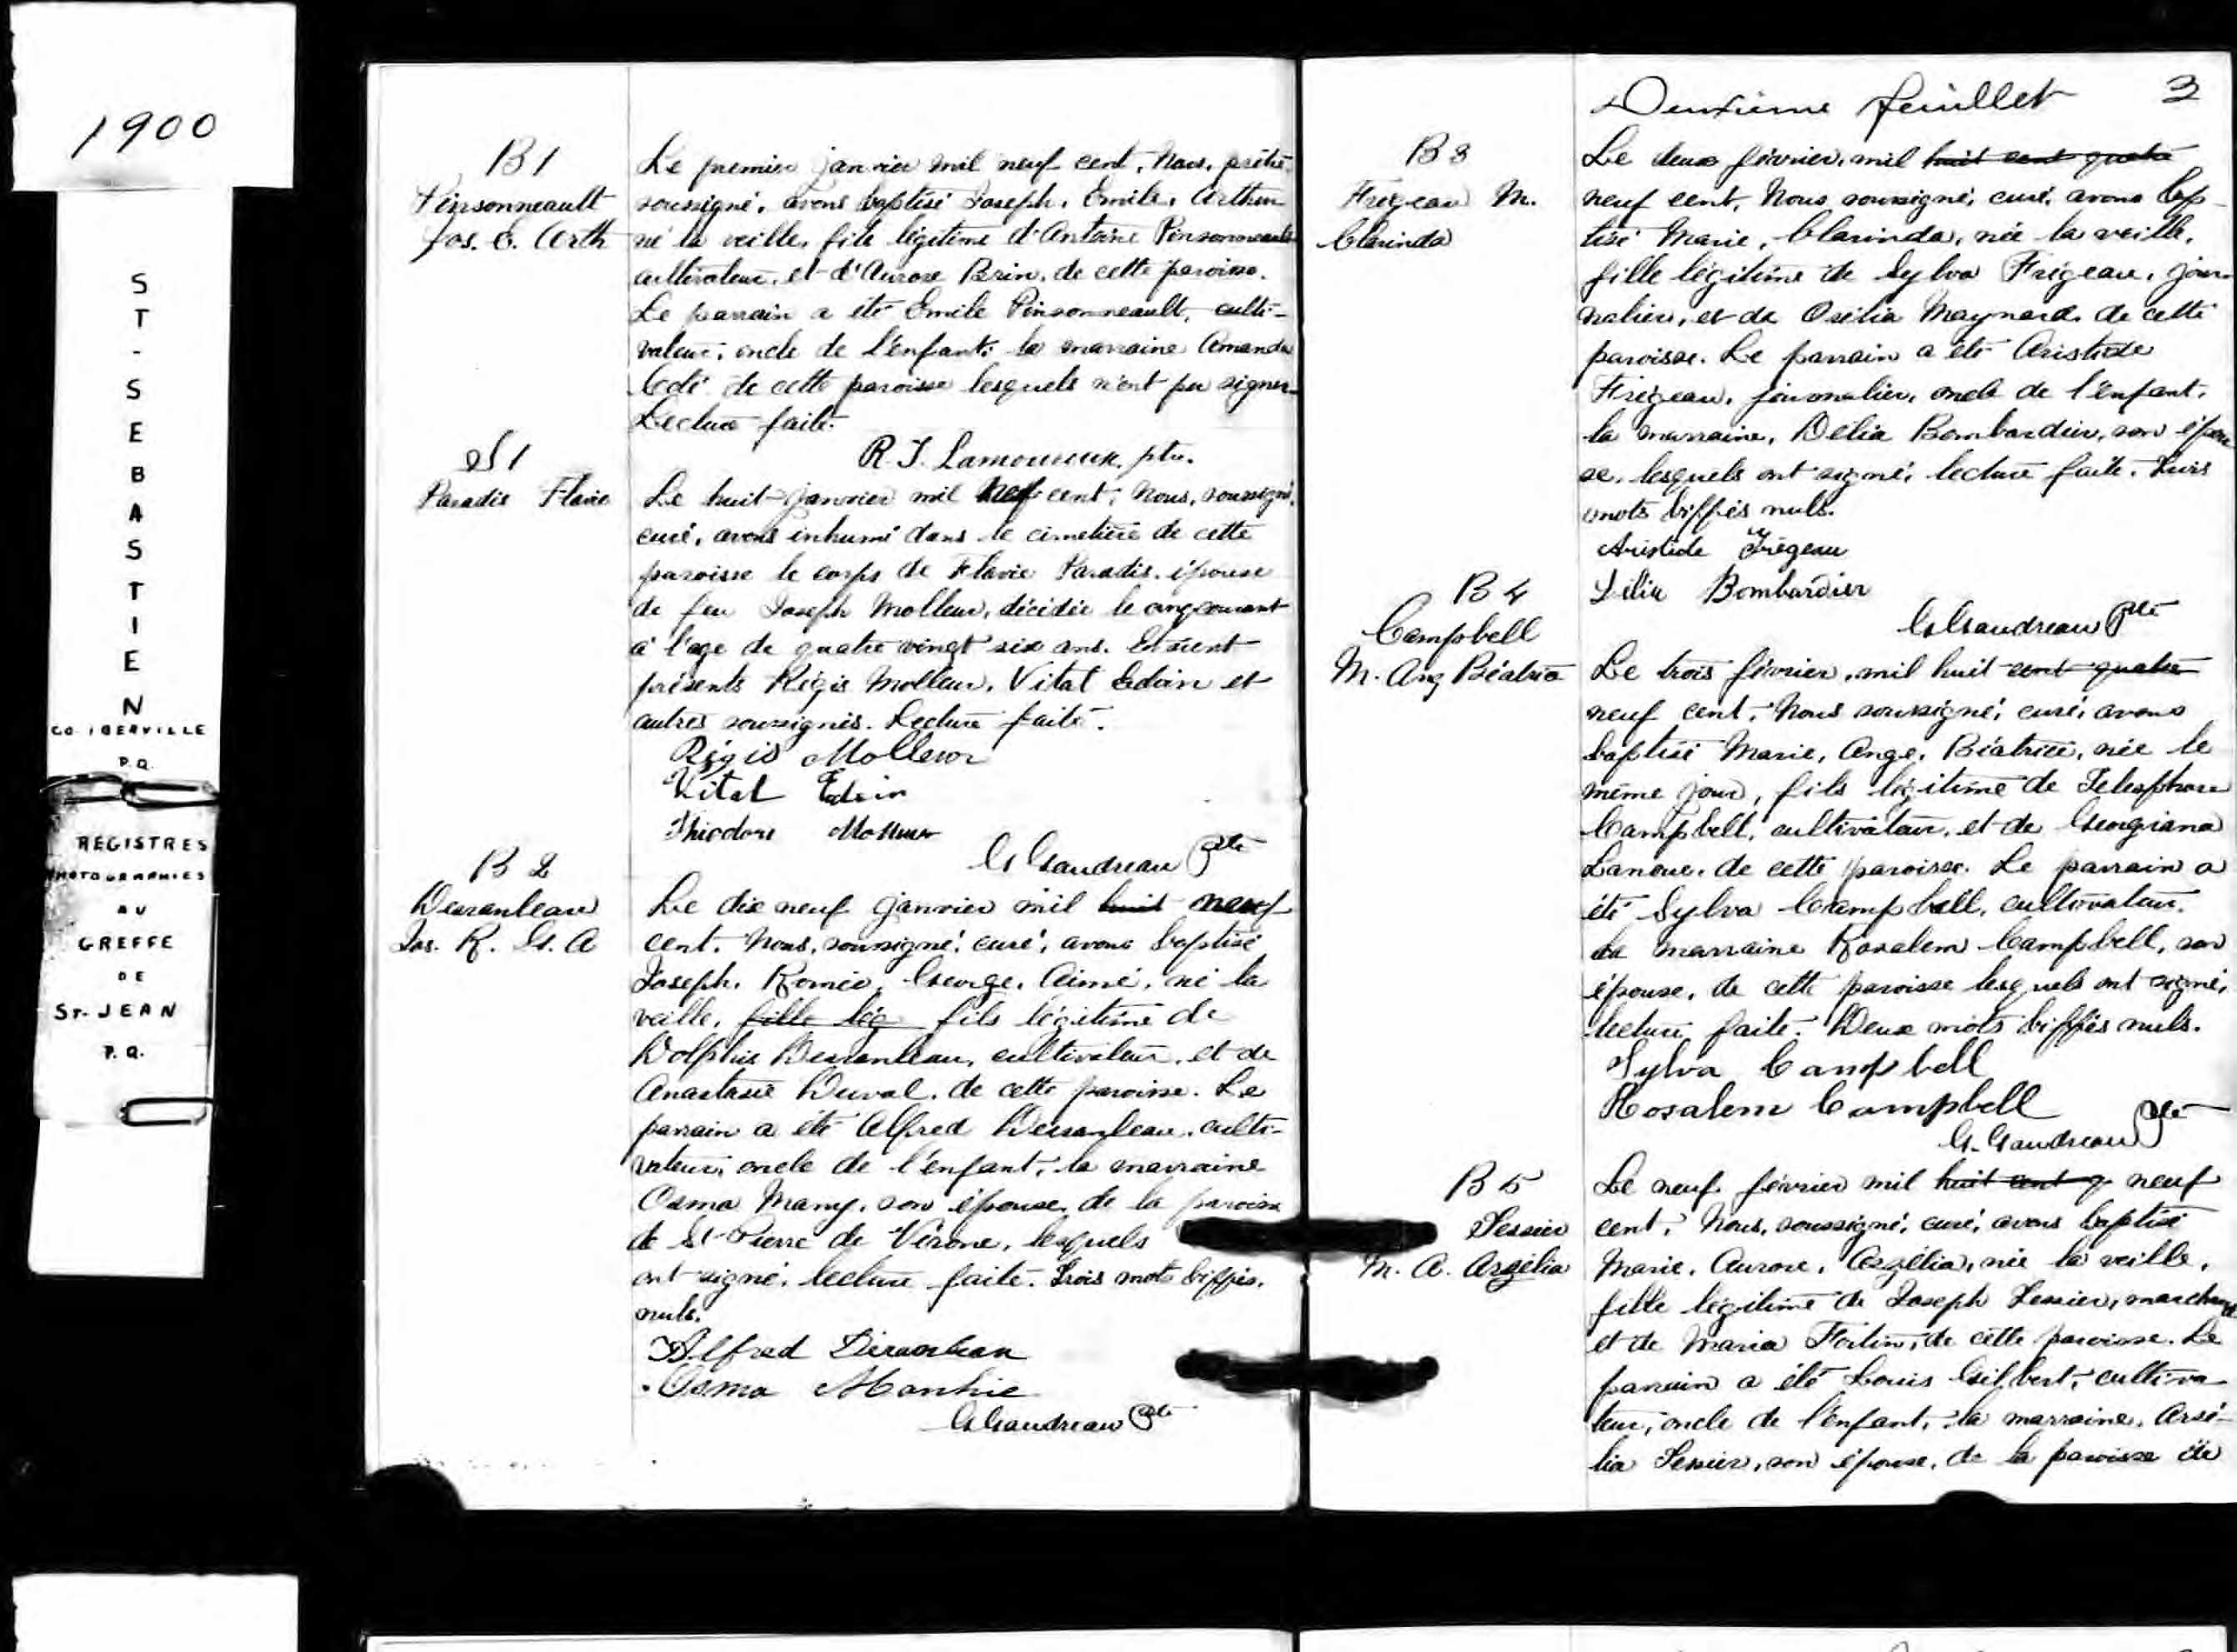 1900
ST-SEBASTIEN
CO. IBERVILLE
P.Q.
REGISTRES
PHOTOGRAPHIES
AU
GREFFE
DE
ST-JEAN
P.Q.
B 1
Pinsonneault
Jos. E. Arth
Le premier janvier mil neuf cent, Nous, prêtre
soussigné, avons baptisé Joseph, Emile, Arthur
né la veille, fils légitime d'Antoine Pinsonneault
cultivateur, et d'Aurore Brin, de cette paroisse.
Le parrain a été Emile Pinsonneault, culti-
vateur, oncle de l'enfant; la marraine Amanda
Coté de cette paroisse lesquels n'ont pu signer
Lecture faite.
R. J. Lamoureux, ptre.
S 1
Paradis Flavie
Le huit janvier mil neuf cent, Nous, soussigné,
curé, avons inhumé dans le cimetière de cette
paroisse le corps de Flavie Paradis, épouse
de feu Joseph Molleur, décédée le cinq courant
à l'age de quatre vingt six ans. Etaient
présents Régis Molleur, Vital Edoin et
autres soussignés. Lecture faite.
Régis Molleur
Vital Edoin
Théodore Molleur
G Gaudreau Ptre
B 2
Desranleau
Jos. R. G. A
Le dix neuf janvier mil huit neuf
cent, Nous, soussigné, curé, avons baptisé
Joseph, Roméo, George, Aimé, né la
veille, fille lég fils légitime de
Dolphis Desranleau, cultivateur, et de
Anastasie Duval, de cette paroisse. Le
parrain a été Alfred Desranleau, culti-
vateur, oncle de l'enfant, la marraine
Osma Many, son épouse, de la paroisse
de St Pierre de Vérone, lesquels
ont signé, lecture faite. Trois mots biffés,
nuls.
Alfred Desranleau
Osma Manhie
G Gaudreau Ptre
Deuxième feuillet 3
B 3
Frégeau M.
Clarinda
Le deux février, mil huit cent quatre
neuf cent, Nous soussigné, curé, avons bap-
tisé Marie, Clarinda, née la veille,
fille légitime de Sylva Frégeau, jour
nalier, et de Osélia Maynard, de cette
paroisse. Le parrain a été Aristide
Frégeau, journalier, oncle de l'enfant,
la marraine, Délia Bombardier, son épou
se, lesquels ont signé, lecture faite. Trois
mots biffés nuls.
Aristide Frégeau
Délia Bombardier
G Gaudreau Ptre
B 4
Campbell
M. Ang Béatrice
Le trois février, mil huit cent quatre
neuf cent, Nous soussigné, curé, avons
baptisé Marie, Ange, Béatrice, née le
même jour, fils légitime de Telesphore
Campbell, cultivateur, et de Georgiana
Lanoue, de cette paroisse. Le parrain a
été Sylva Campbell, cultivateur,
la marraine Rosalem Campbell, son
épouse, de cette paroisse lesquels ont signé,
lecture faite. Deux mots biffés nuls.
Sylva Campbell
Rosalem Campbell
G. Gaudreau Ptre
B 5
Tessier
M. A. Argélia
Le neuf février mil huit cent q neuf
cent, Nous, soussigné, curé, avons baptisé
Marie, Aurore, Argélia, née la veille,
fille légitime de Joseph Tessier, marchand
et de Maria Fortin, de cette paroisse. Le
parrain a été Louis Gilbert, cultiva
teur, oncle de l'enfant, la marraine, Arsé-
lia Tessier, son épouse, de la paroisse de